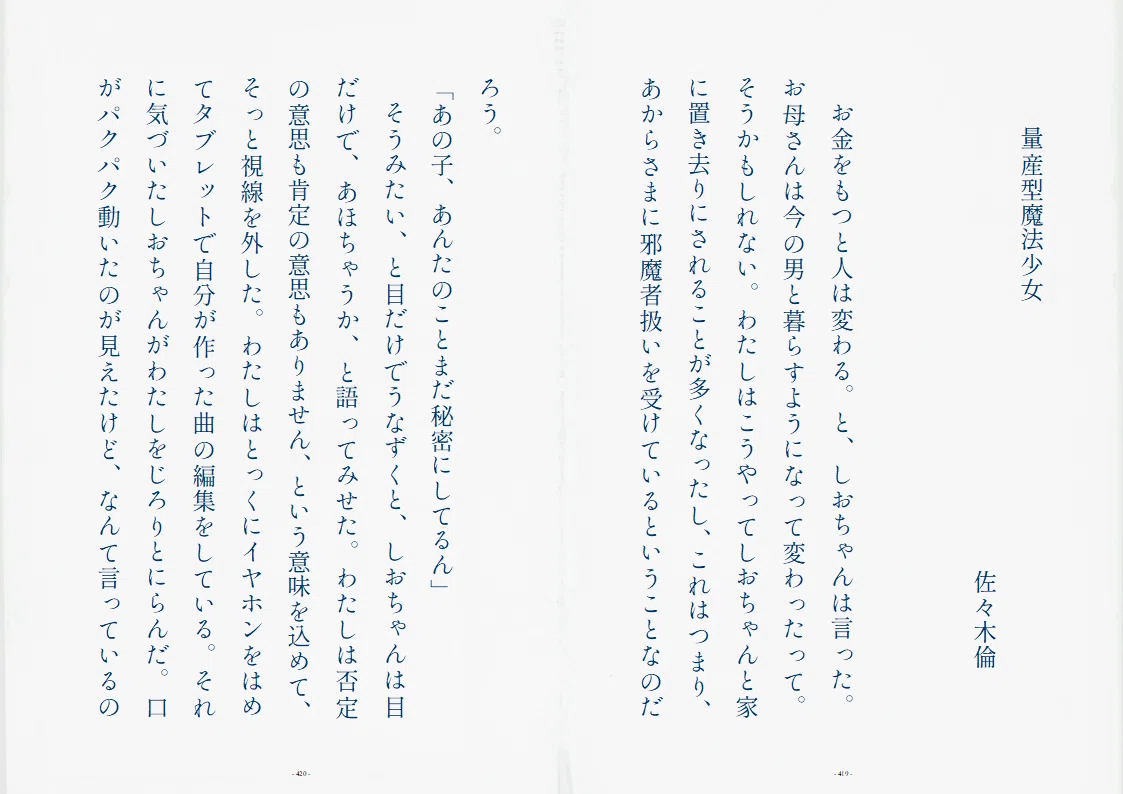 量産型魔法少女
佐々木倫
お金をもつと人は変わる。と、しおちゃんは言った。
お母さんは今の男と暮らすようになって変わったって。
そうかもしれない。わたしはこうやってしおちゃんと家
に置き去りにされることが多くなったし、これはつまり、
あからさまに邪魔者扱いを受けているということなのだ
- 419 -
ろう。
「あの子、あんたのことまだ秘密にしてるん」
そうみたい、と目だけでうなずくと、しおちゃんは目
だけで、あほちゃうか、と語ってみせた。わたしは否定
の意思も肯定の意思もありません、という意味を込めて、
そっと視線を外した。わたしはとっくにイヤホンをはめ
てタブレットで自分が作った曲の編集をしている。それ
に気づいたしおちゃんがわたしをじろりとにらんだ。口
がパクパク動いたのが見えたけど、なんて言っているの
- 420 -